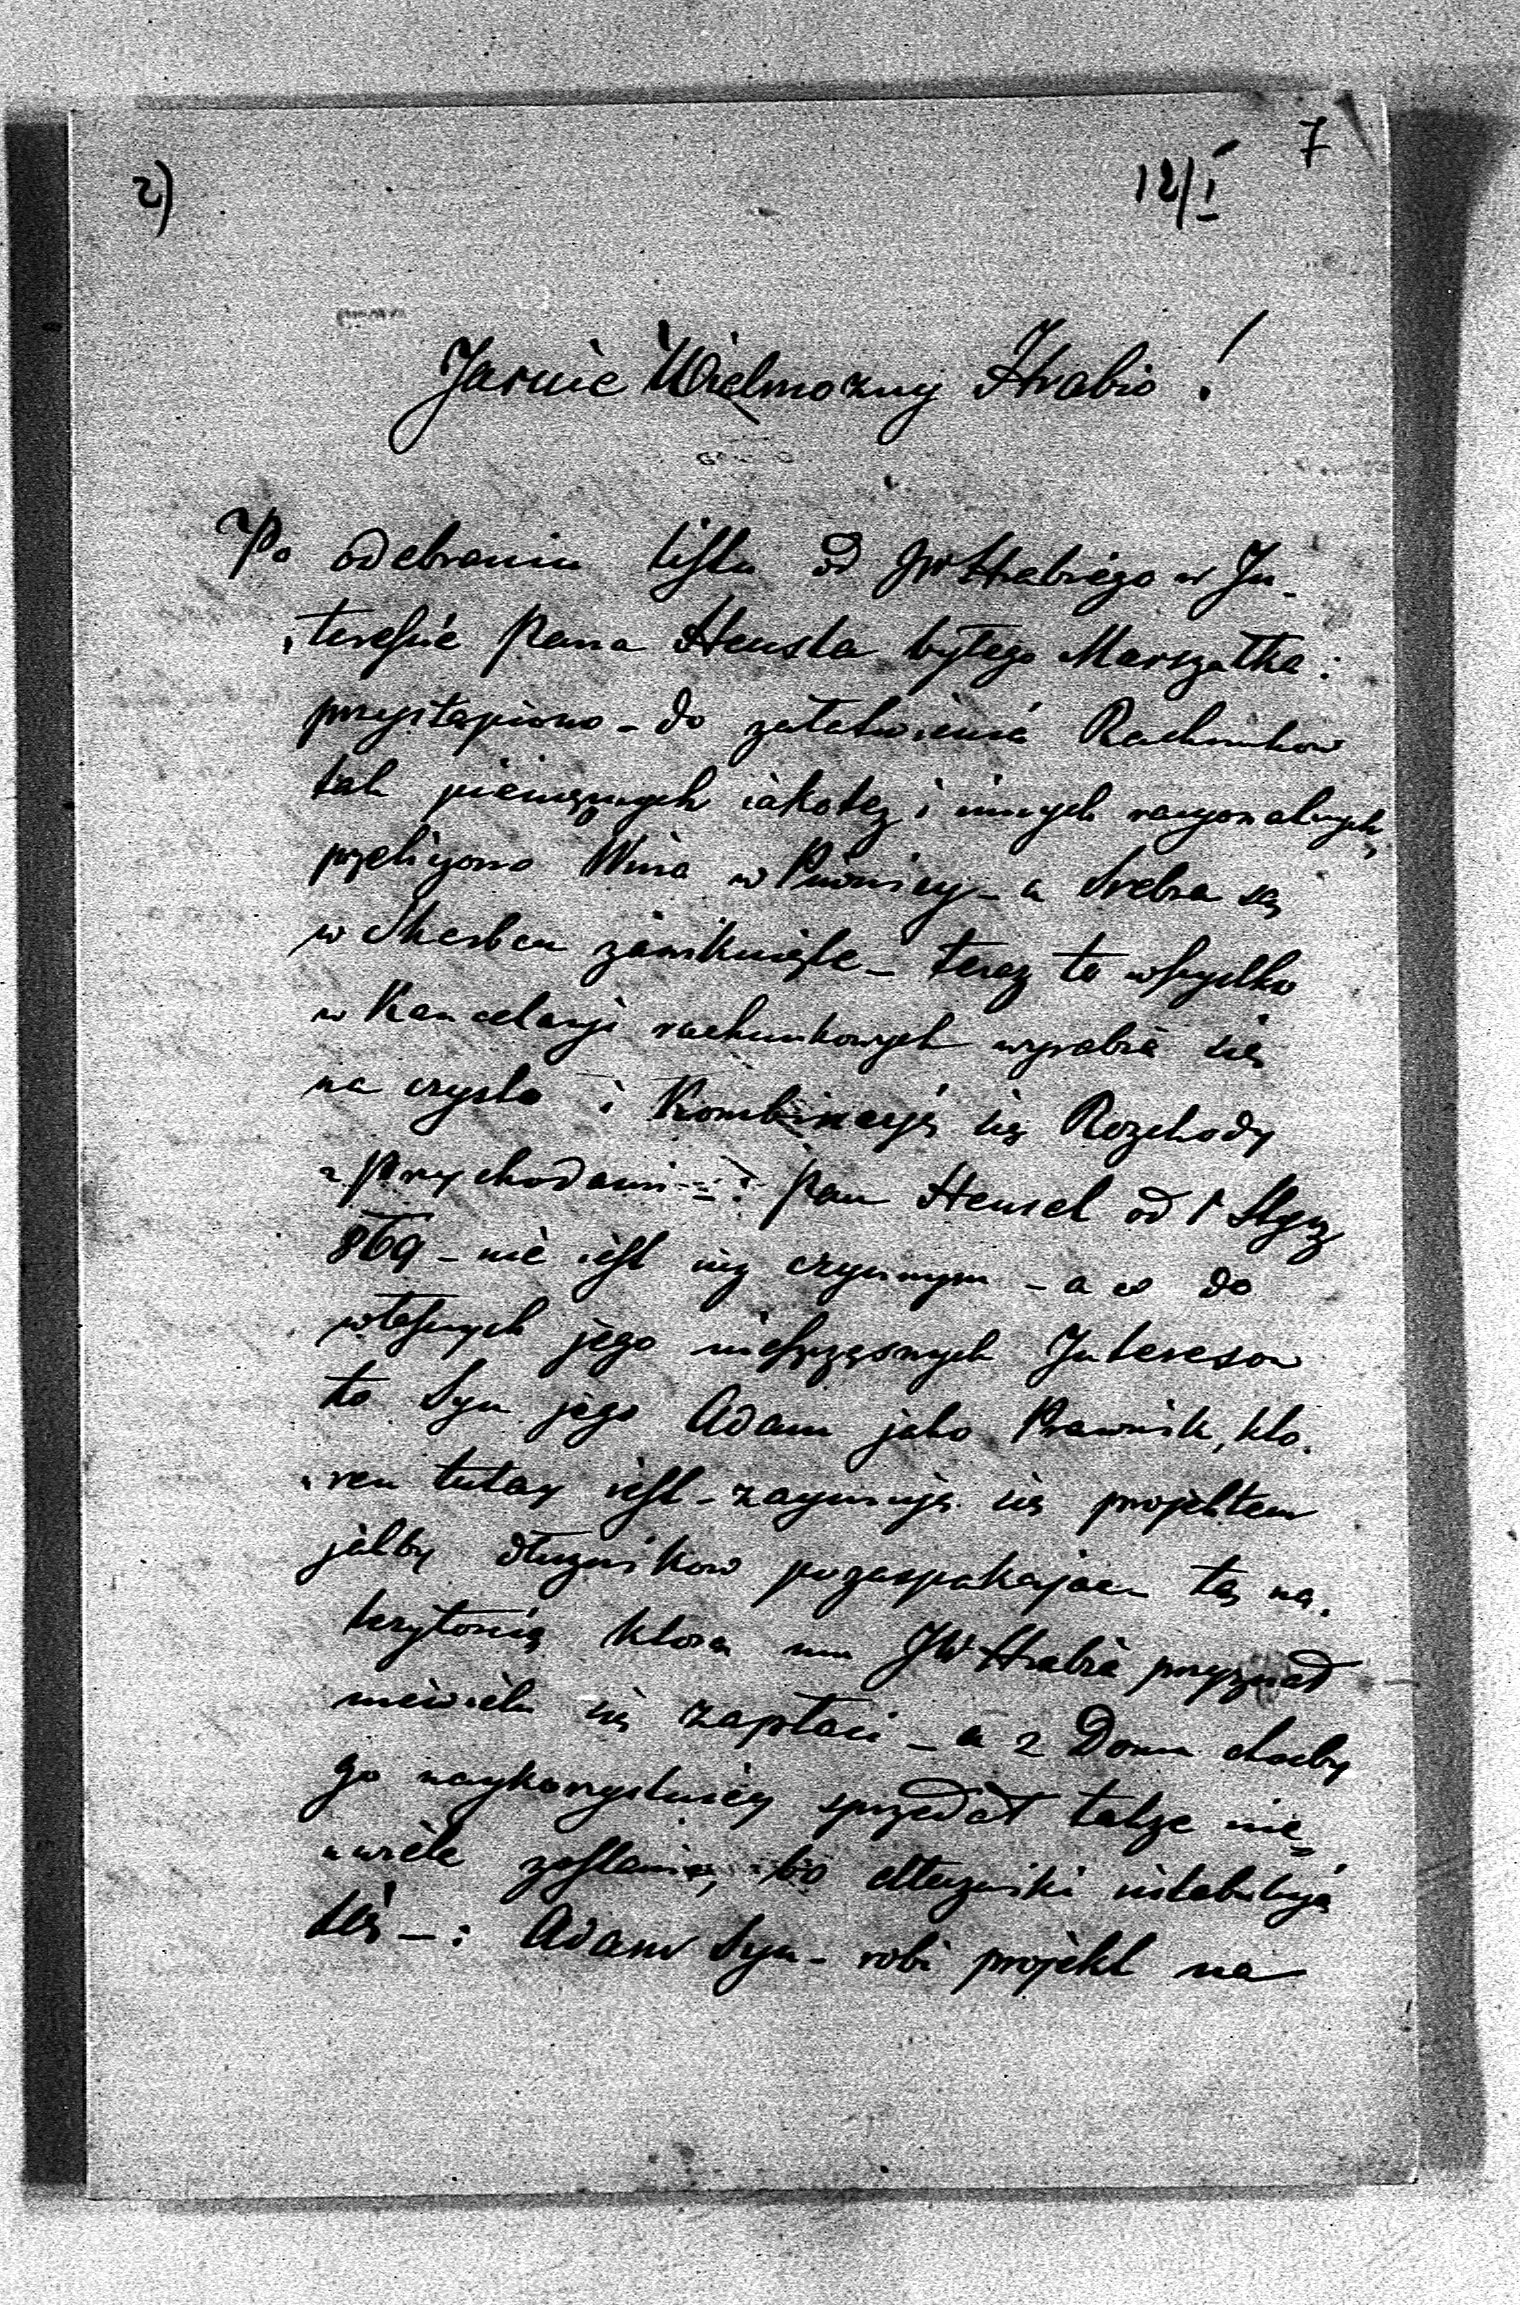 2)
12/I
7
Jasnie Wielmozny Hrabio!
Po odebraniu listu od JWHrabiego w In-
teresie Pana Hensla byłego Marszałka:
przystąpiono - do załatwienia Rachunkow
tak pieniężnych iakotez i innych racyonalnych,
przeliczono Wina w Piwnicy - a Srebra są
w Skarbcu zamknięte - teraz to wszystko
w Kancelaryi rachunkowych wyrabia się
na czysto i Kombinują się Rozchody
z przychodami -: Pan Hensel od 1 Stycz
869 - nie iest czynnym - a co do
własnych jego nieszczęsnych Interesow
to Syn jego Adam jako Prawnik, kto-
ren tutay iest - zaymuje się projektem
jakby dłuznikow pozaspakajac tą na-
leżytością ktora mu JWHrabia przyznał
niewiele się zapłaci - a z Domu choćby
go naykorzystniey sprzedał takze nie-
wiele zostanie, bo dłuzniki intabulują
się -: Adam Syn - robi projekt na